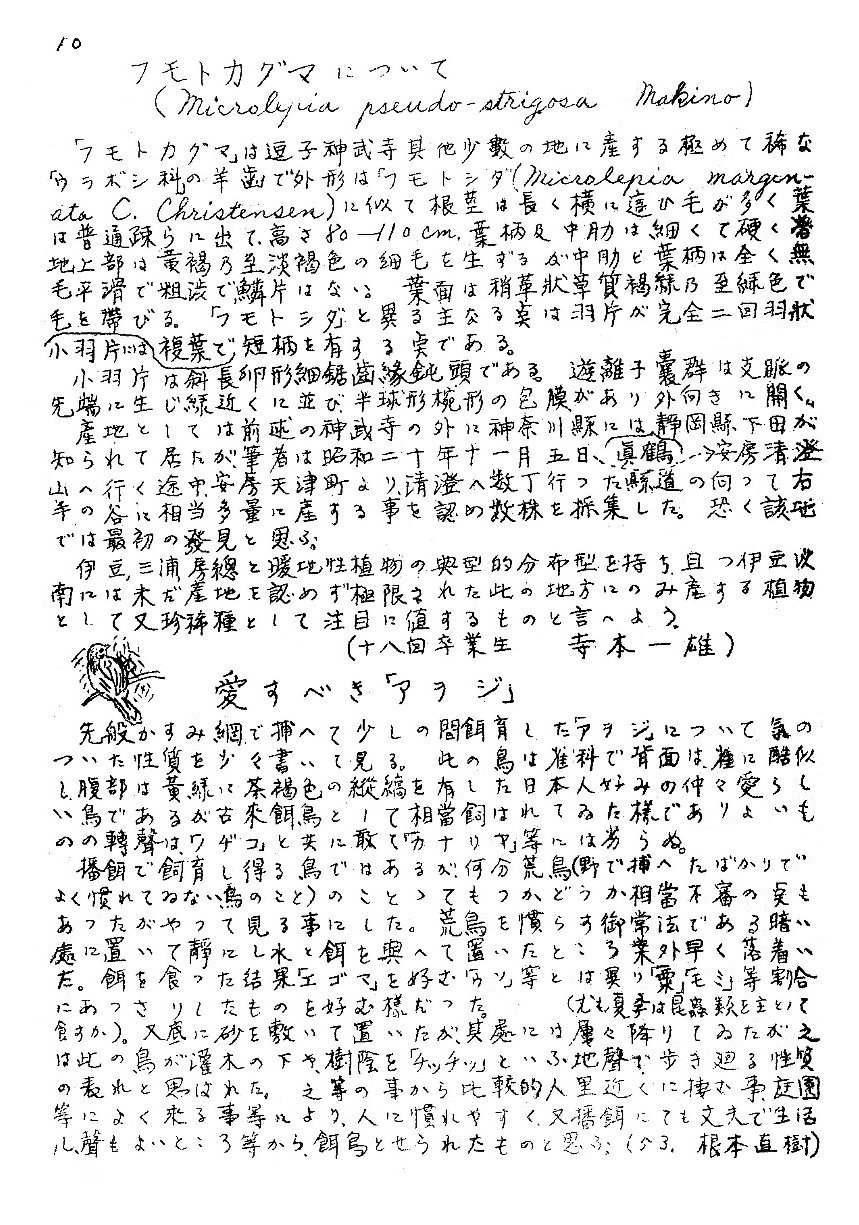 10
フモトカグマについて
(Microlepia pseudo-strigosa Makino)
「フモトカグマ」は逗子神武寺其他少数の地に産する極めて稀な
「ウラボシ科」の羊歯」で外形は「フモトシダ(Microlepia margin-
ata C. Christensen)に似て根莖は長く横に這ひ毛が多く葉
は普通疎らに出て、高さ80—110cm. 葉柄及中肋は細くて硬く著
地上部は黄褐乃至淡褐色の細毛を生ずるが中肋と葉柄は全く無
毛平滑で粗渋で鱗片はない。葉面は稍革状草質褐緑乃至緑色で
毛を帯びる。「フモトシダ」と異る主なる実は羽片が完全二回羽状
小羽片は複葉で短柄を有する実である。
小羽片は斜長卵形細鋸歯緑鈍頭である。遊離子嚢群は支脈の
先端に生じ緑近くに並び半球形椀形の包膜があり外向きに開く。
産地としては前述の神武寺の外神奈川縣には静岡縣下田が
知られて居たが筆者は昭和十年十一月五日、眞鶴→安房清澄
山へ行く途中、安房天津町より清澄へ数丁行った縣道の向って右
手の谷に相当多量に産する事を認め数株を採集した。恐く該地
では最初の発見と思ふ。
伊豆、三浦房總と暖地性植物の典型的分布型を持ち、且つ伊豆以
南には未だ産地を認めず極限された此の地方にのみ産する植物
として又珍稀種として注目に値するものと言へよう。
(十八回卒業生 寺本一雄)
愛すべき「アヲジ」
先般かすみ網で捕へて少しの間餌育した「アヲジ」について気の
ついた性質を少々書いて見る。此の鳥は雀科で背面は、雀に酷似
し、腹部は黄緑に茶褐色の縦縞を有した日本人好みの仲々愛らし
い鳥であるが古來餌鳥として相當飼はれてゐた様でありよいも
のの轉聲は「ウグヒ」と共に敢て「カナリヤ」等には劣らぬ。
播餌で飼育し得る鳥ではあるが、何分荒鳥(野で捕へたばかりで
よく慣れてゐない鳥のこと)のことゝてもつかどうか相當不審の実も
あったがやって見る事にした。荒鳥を慣らす御常法である暗い
處に置いて静にし水と餌を與へて置いたところ案外早く落着い
た。餌を食った結果「エゴマ」を好む「ウソ」等とは異り「粟」「モミ」等割合
にあっさりしたものを好む様だった。(尤も夏季は昆蟲類を主として
食すか)。又底に砂を敷いて置いたが、其處には屢々降りてゐたが之
は此の鳥が灌木の下や、樹陰を「チッチッ」といふ地聲で歩き廻る性質
の表れと思はれた。之等の事から比較的人里近くに棲む事、庭園
等によく来る事等により、人に慣れやすく、又播餌にても丈夫で生活
し、聲もよいところ等から、餌鳥とせられたものと思ふ。(53. 根本直樹)